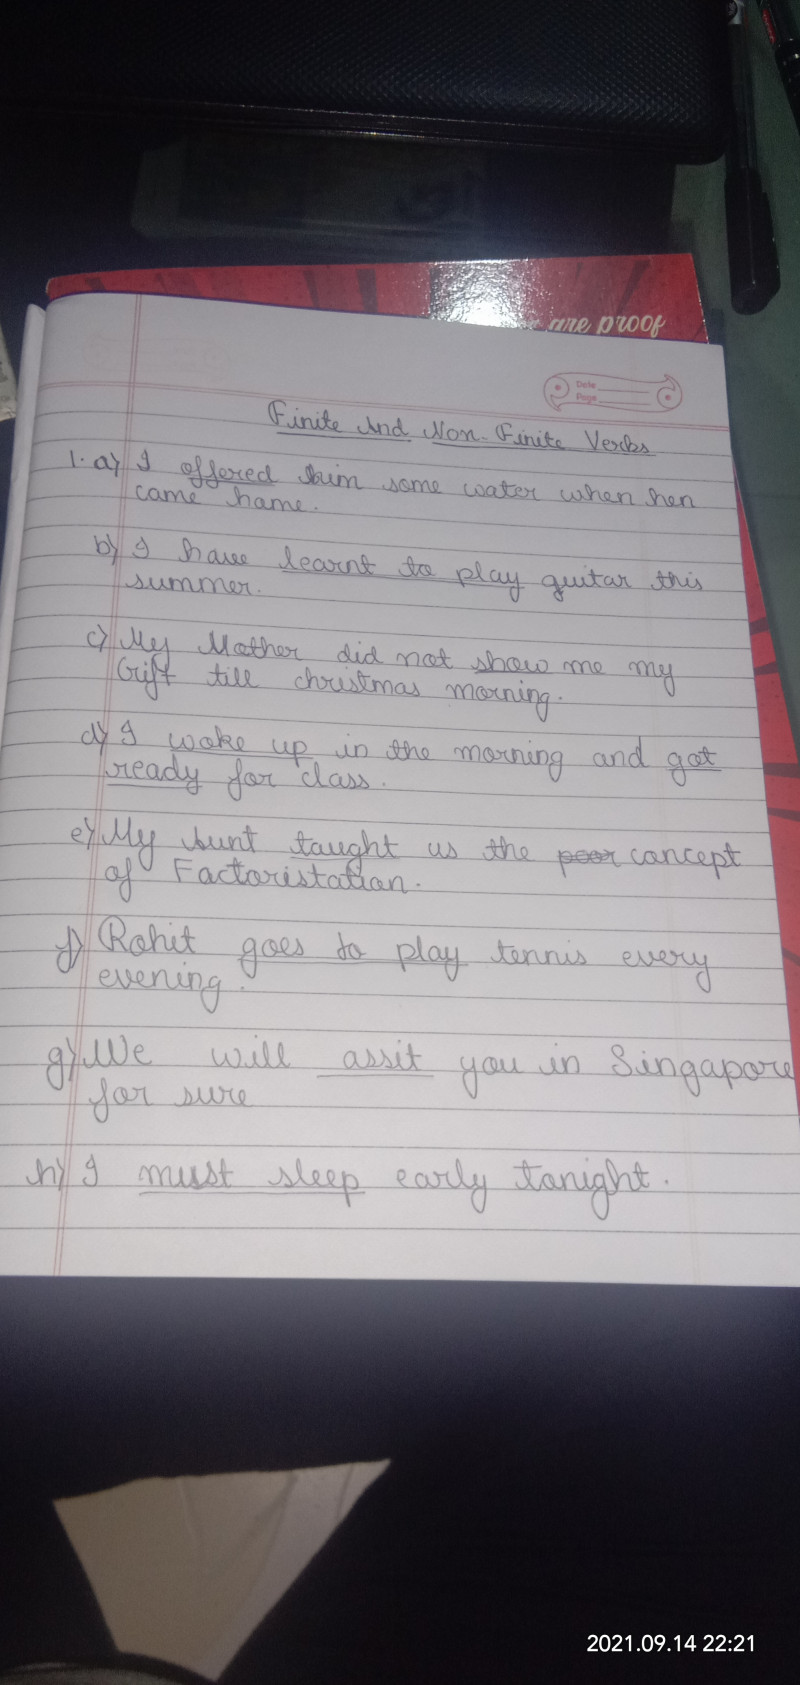 are proof
Date
Page
Finite And Non-Finite Verbs
1. a) I offered him some water when hen
came home.
b) I have learnt to play guitar this
summer.
c) My Mother did not show me my
Gift till christmas morning.
d) I woke up in the morning and got
ready for class.
e) My Aunt taught us the poor concept
of Factoristation.
f) Rohit goes to play tennis every
evening.
g) We will assit you in Singapore
for sure
h) I must sleep early tonight.
2021.09.14 22:21